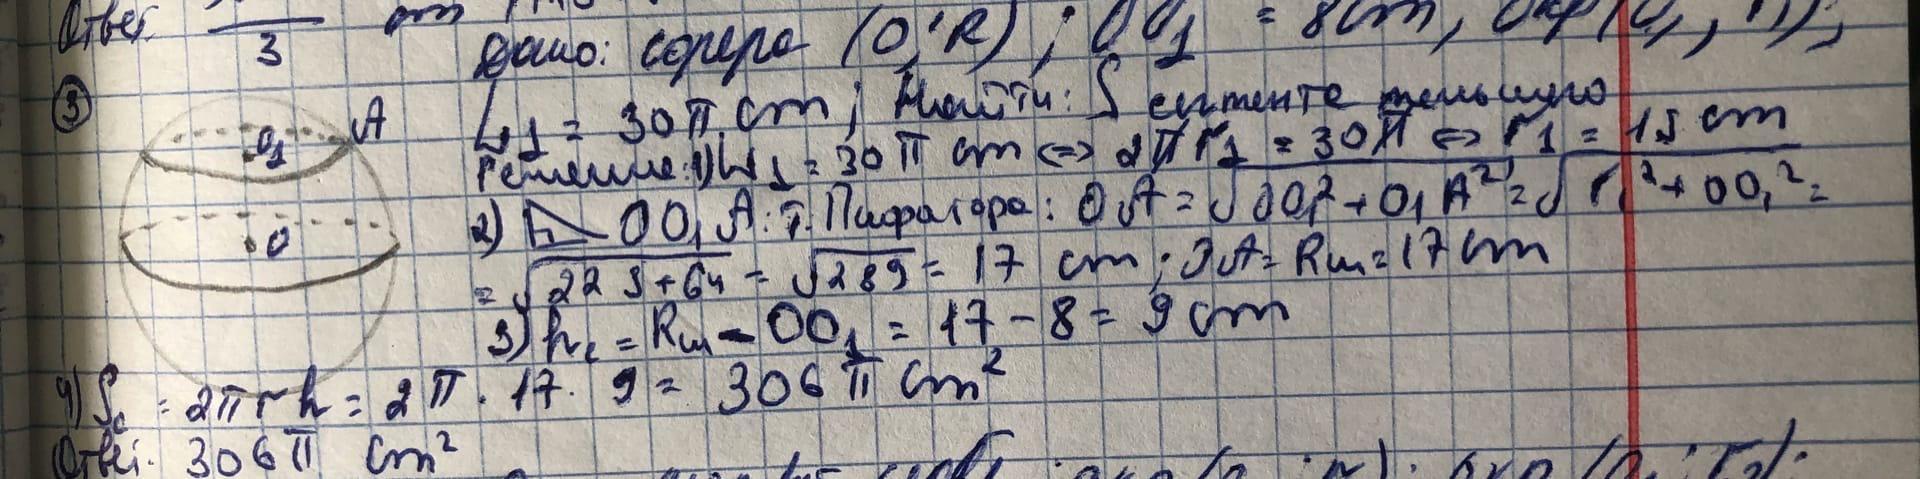 Ответ. 3 cm
Дано: сфера (O; R); OO₁ = 8 cm, Окр (O₁, r₁);
③ A O₁ O
L₁ = 30π cm; Найти: S сегмента меньшего
Решение: 1) L₁ = 30π cm ⇔ 2πr₁ = 30π ⇔ r₁ = 15 cm
2) ◺ OO₁A: т. Пифагора: OA = √OO₁² + O₁A² = √r₁² + OO₁² =
= √225 + 64 = √289 = 17 cm; OA = Rш = 17 cm
3) hc = Rш - OO₁ = 17 - 8 = 9 cm
4) Sc = 2πrh = 2π · 17 · 9 = 306π cm²
Ответ. 306π cm²